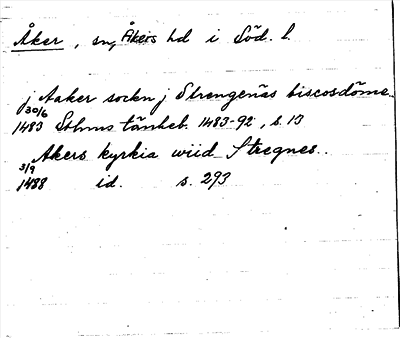 Åker, sn, Åkers hd i Söd. l.
j Aaker sockn j Strengenäs biscosdöme.
30/6
1483 Sthms tänkeb. 1483-92, s. 13
Akers kyrkia wiid Stregnes.
3/9
1488 id. s. 293